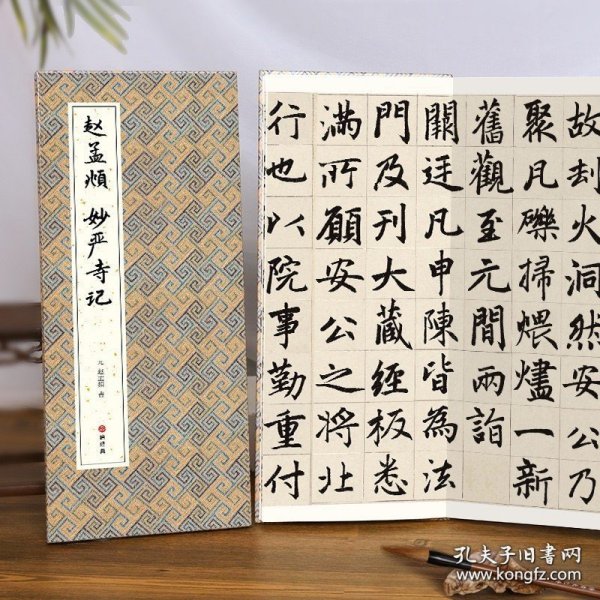 赵孟頫 妙严寺记
元 赵孟頫 书
故刦火洞然安公乃
聚瓦礫掃煨燼一新
舊觀至元間兩詣
闕廷凡申陳皆為法
門及刊大藏經板悉
滿所願安公之將北
行也以院事勤重付
孔夫子旧书网
www.kongfz.com